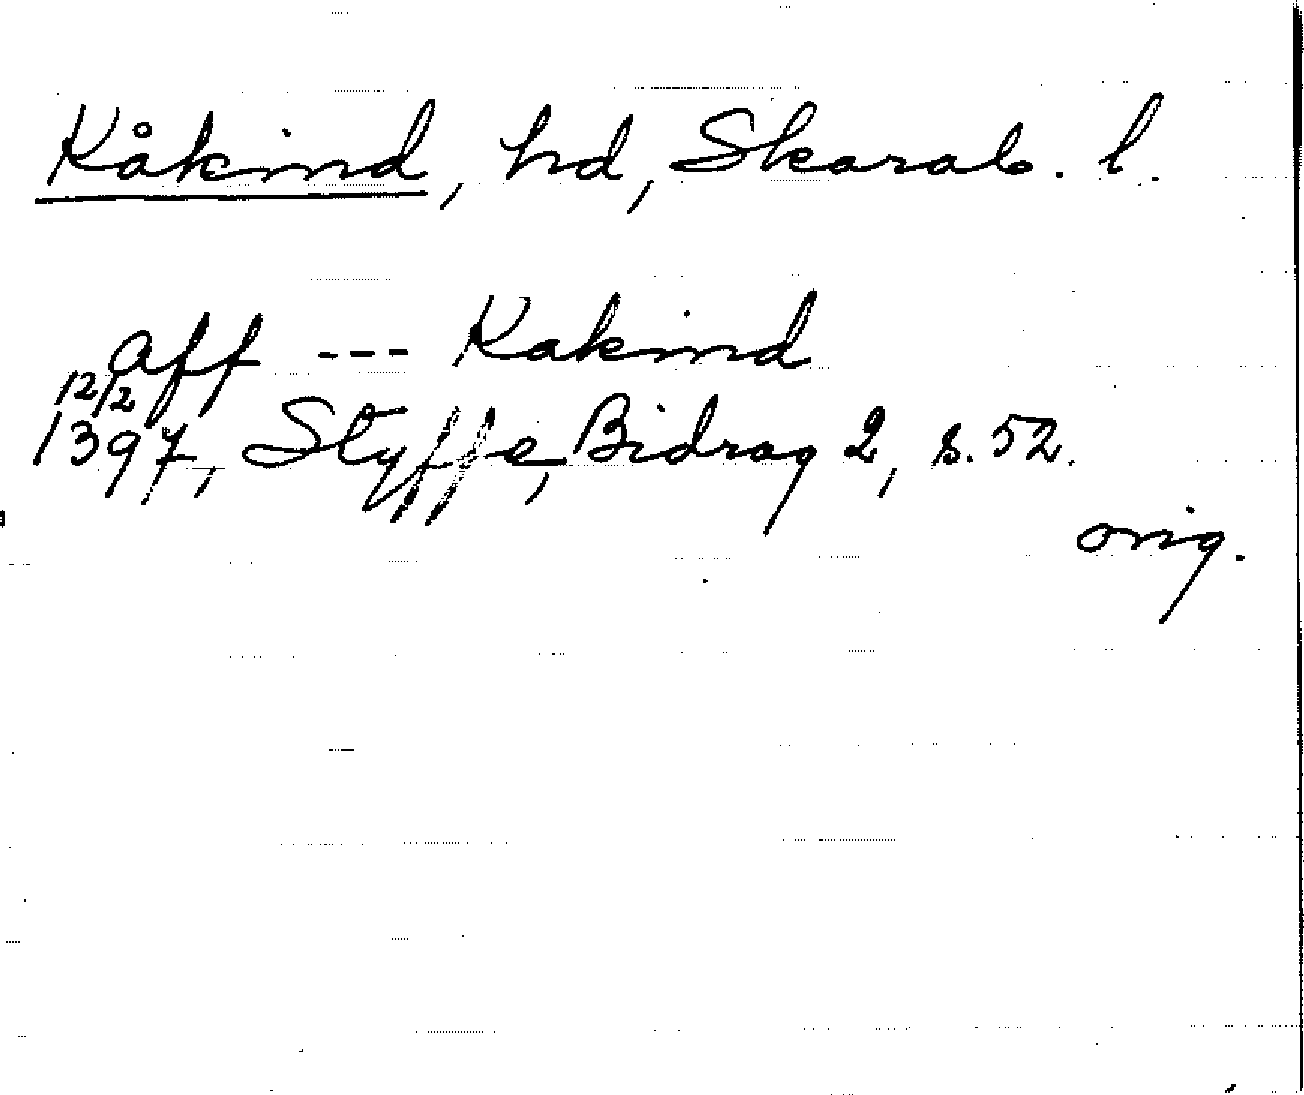 Kåkind, hd, Skarab. l.
aff --- Kakind
12/2
1397, Styffe, Bidrag 2, s. 52.
orig.